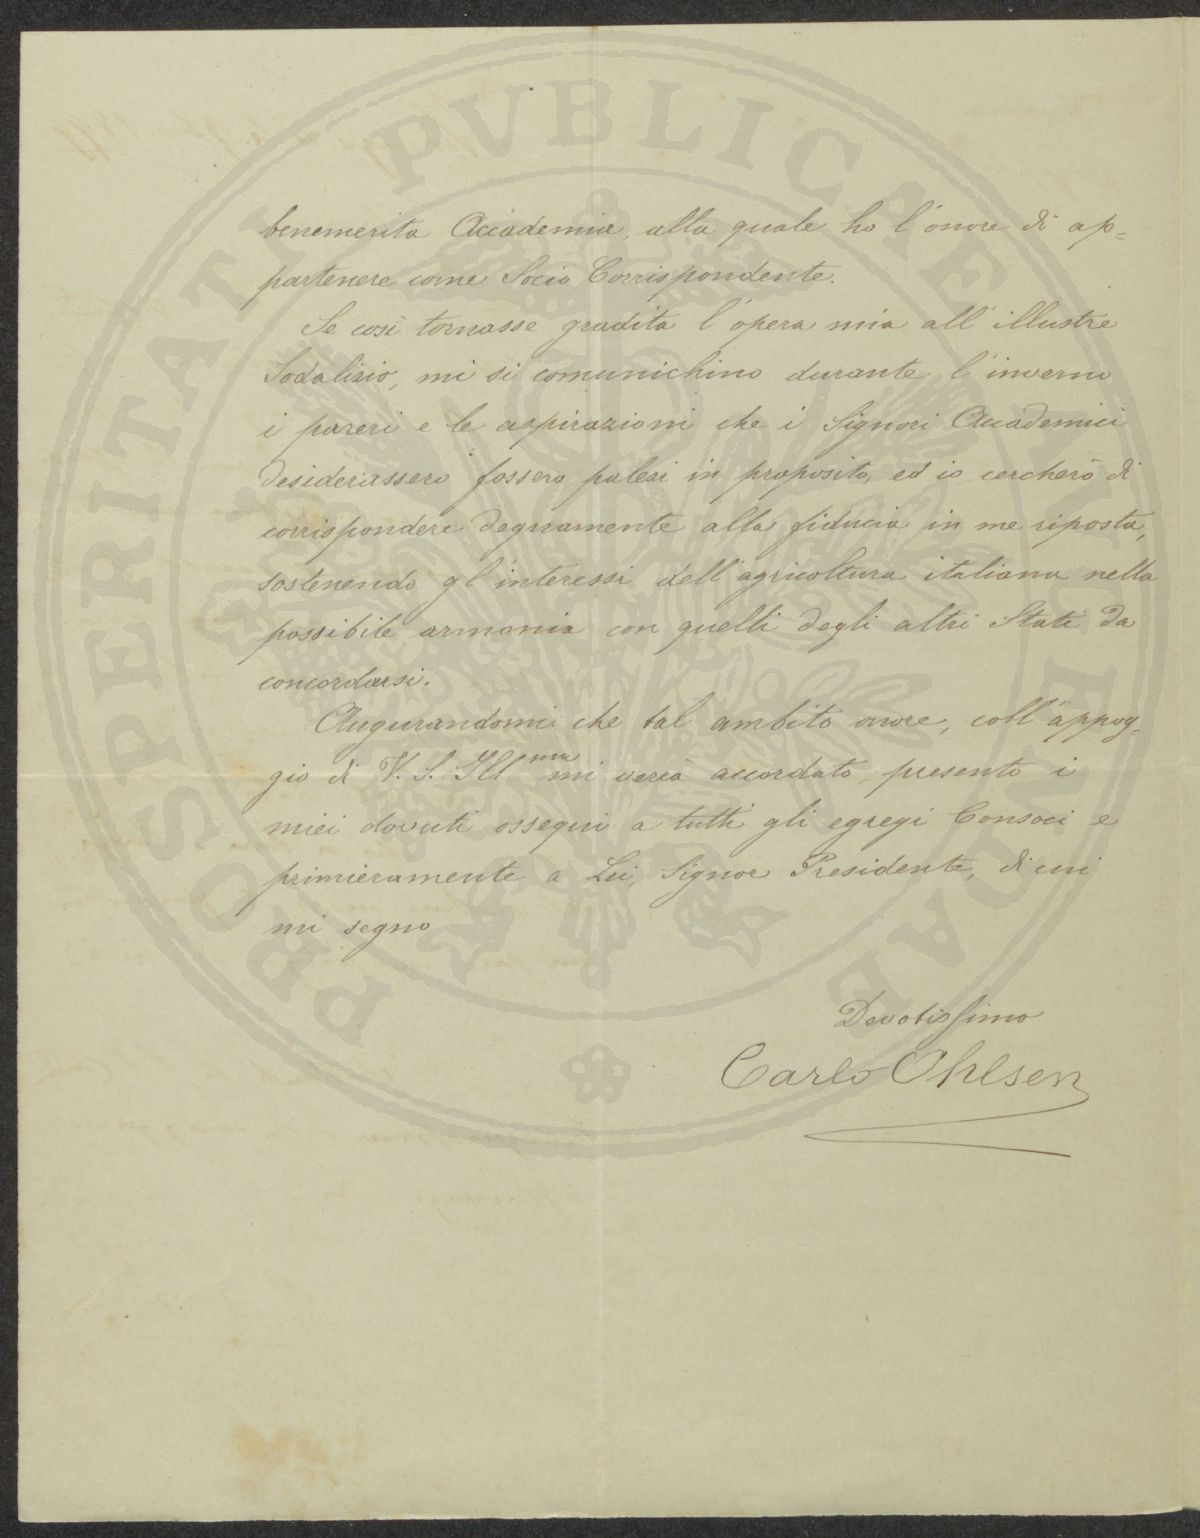 benemerita Accademia, alla quale ho l'onore di ap=
partenere come Socio Corrispondente.
Se così tornasse gradita l'opera mia all'illustre
Sodalizio, mi si comunichino durante l'inverno
i pareri e le aspirazioni che i Signori Accademici
desiderassero fossero palesi in proposito, ed io cercherò di
corrispondere degnamente alla fiducia in me riposta,
sostenendo gl'interessi dell'agricoltura italiana nella
possibile armonia con quelli degli altri Stati da
concordarsi.
Augurandomi che tal ambito onore, coll'appog-
gio di V. S. Ill.ma mi verrà accordato, presento i
miei dovuti ossequi a tutti gli egregi Consoci e
primieramente a Lei, Signor Presidente, di cui
mi segno
Devotissimo
Carlo Ohlsen
PROSPERITATI PVBLICAE AVGENDAE